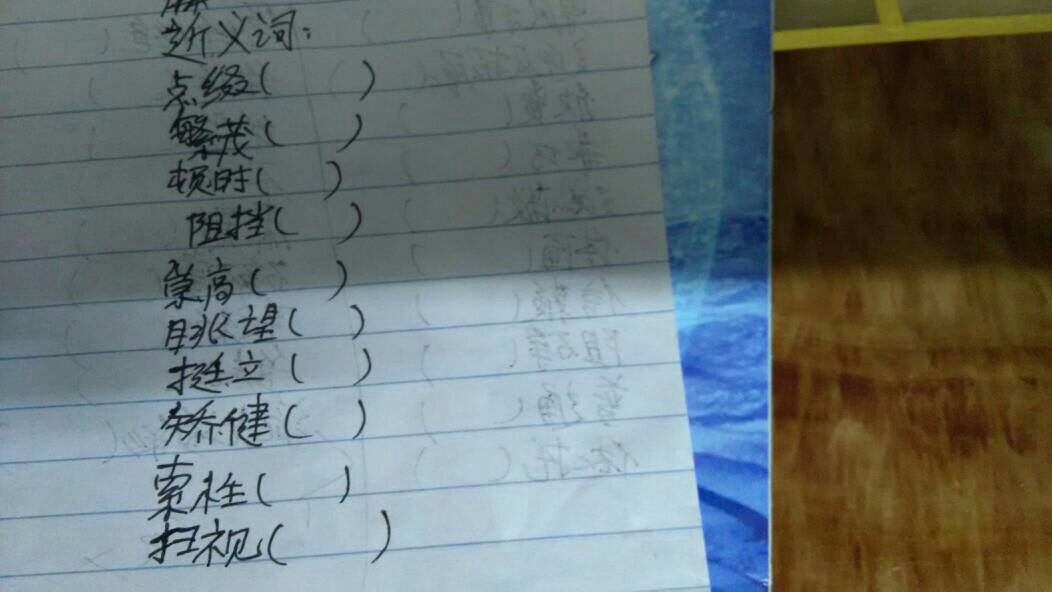 近义词:
点缀(    )
繁茂(    )
顿时(    )
阻挡(    )
崇高(    )
眺望(    )
挺立(    )
矫健(    )
索性(    )
扫视(    )